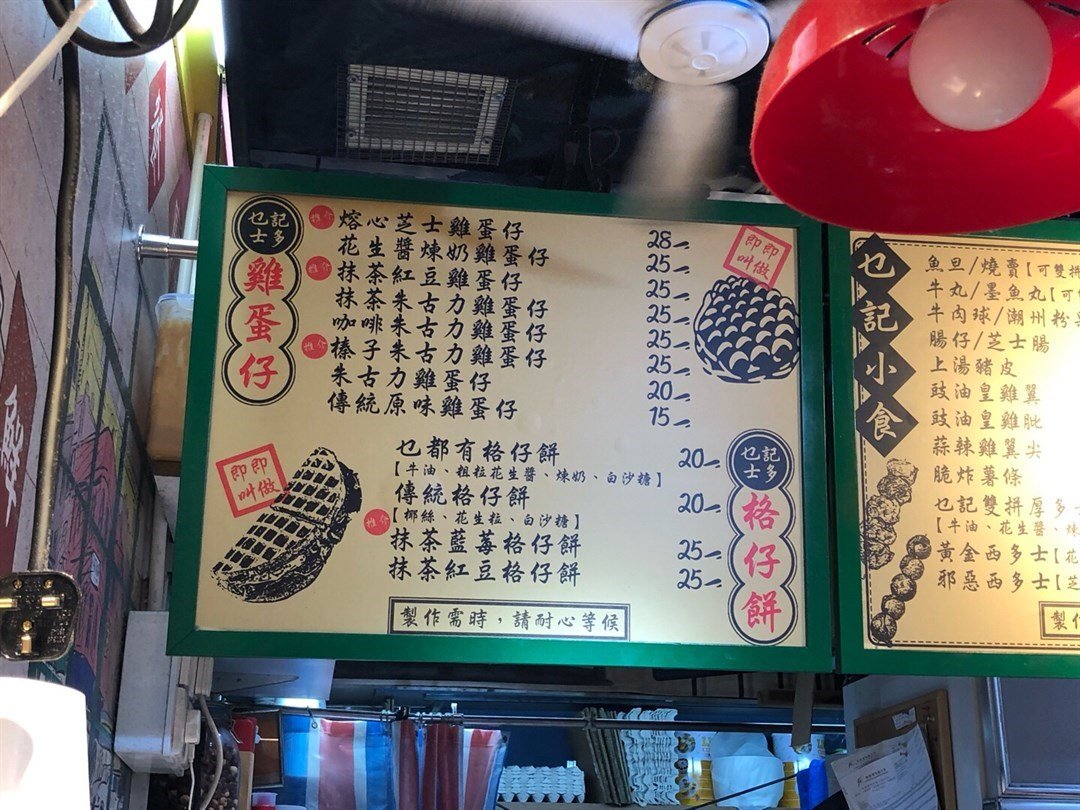 乜記
士多
雞蛋仔
推介
熔心芝士雞蛋仔 28-
花生醬煉奶雞蛋仔 25-
推介
抹茶紅豆雞蛋仔 25-
抹茶朱古力雞蛋仔 25-
咖啡朱古力雞蛋仔 25-
推介
榛子朱古力雞蛋仔 25-
朱古力雞蛋仔 20-
傳統原味雞蛋仔 15-
即叫
即做
即叫
即做
乜都有格仔餅 20-
【牛油、粗粒花生醬、煉奶、白沙糖】
傳統格仔餅 20-
【椰絲、花生粒、白沙糖】
推介
抹茶藍莓格仔餅 25-
抹茶紅豆格仔餅 25-
製作需時，請耐心等候
乜記
士多
格仔餅
乜記小食
魚旦/燒賣【可雙拼
牛丸/墨魚丸【可
牛肉球/潮州粉
腸仔/芝士腸
上湯豬皮
豉油皇雞翼
豉油皇雞肶
蒜辣雞翼尖
脆炸薯條
乜記雙拼厚多士
【牛油、花生醬、煉
黃金西多士【花
邪惡西多士【芝
製作